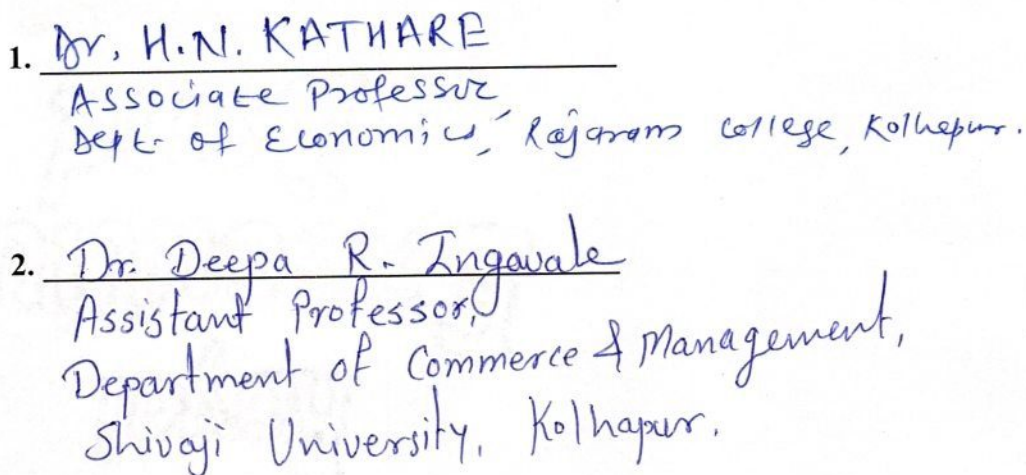 1. Dr. H.N. KATHARE
Associate Professor
Dept. of Economics, Rajaram College, Kolhapur.
2. Dr. Deepa R. Ingavale
Assistant Professor,
Department of Commerce & Management,
Shivaji University, Kolhapur.